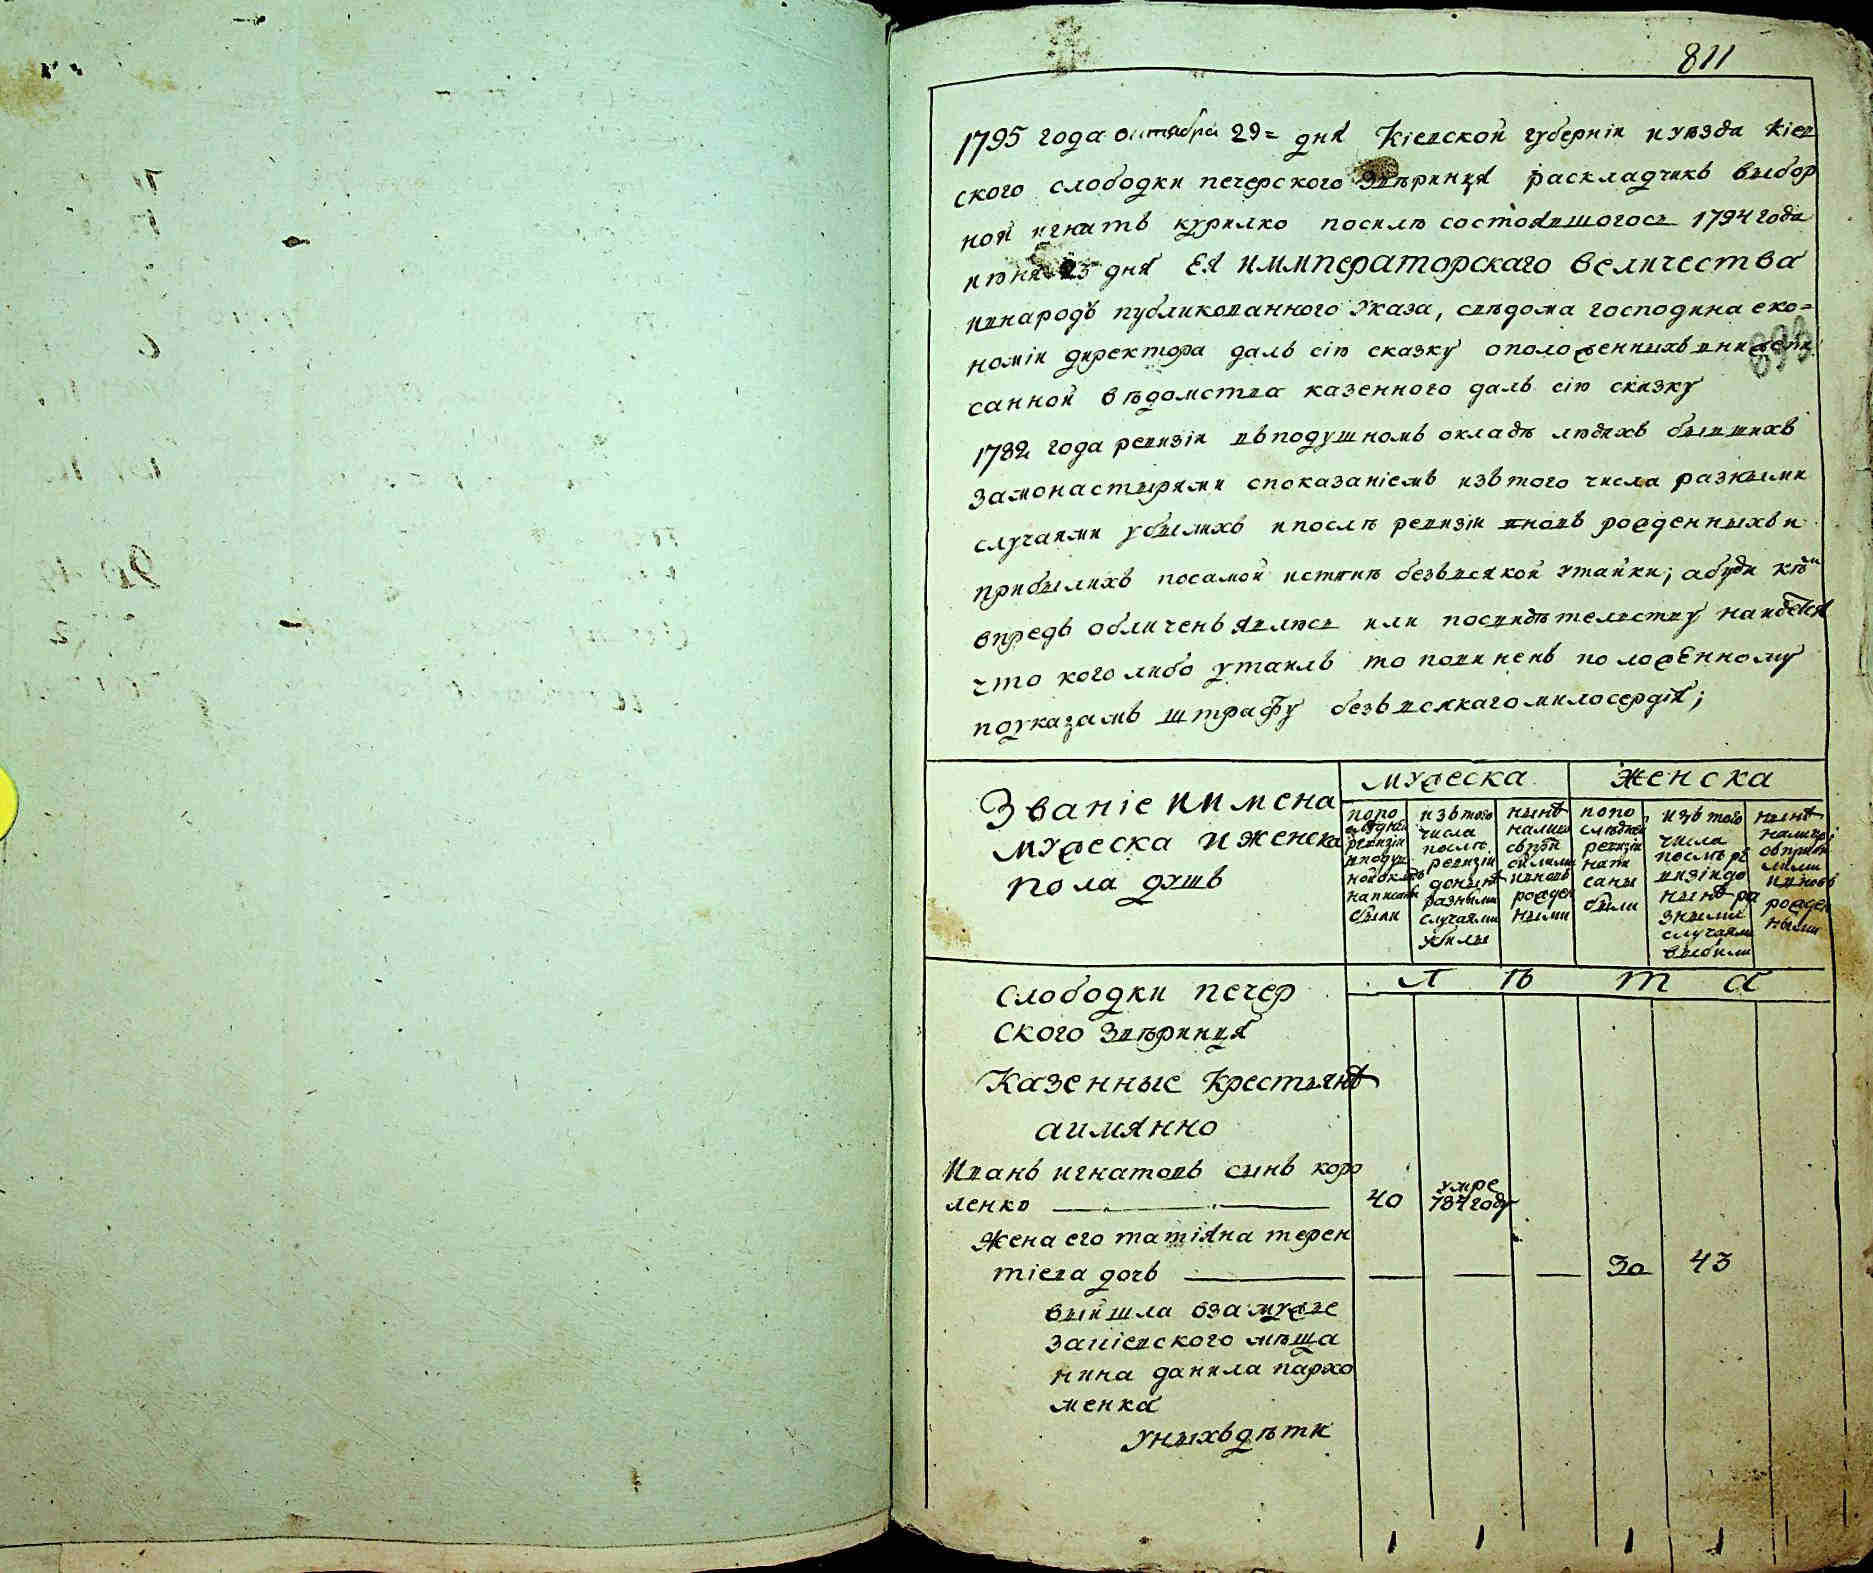 811
1795 года октября 29= дня Кіевской губерніи и уѣзда Кіев
ского слободки печерского звѣринця раскладчикъ выбор
ной игнатъ курилко посилѣ состоявшогось 1794 года
июня 23 дня ея иммператорскаго величества
внародъ публикованного указа, свѣдома господина еко=
номіи директора далъ сію сказку оположенныхъ
санной вѣдомства казенного далъ сію сказку
1782 года ревизіи въ подушномъ окладѣ людяхъ бывшихъ
замонастырями споказаніемъ изътого числа разными
случаями убылихъ ипослѣ ревизіи вновь рожденныхъ и
прибылихъ посамой истинѣ безъвсякой утайки; абуди кѣм
впредь обличенъ явлюсь или посвидѣтелству найдется
что коголибо утаилъ то повиненъ положенному
поуказамъ штрафу безъвсякаго милосердія;
Званіе иимена
мужеска иженска
пола душъ
мужеска
женска
попо
слѣдней
ревизіи
вподуш
ной окладъ
написаны
были
изътого
числа
послѣ
ревизіи
донынѣ
разными
случаями
убилы
нынѣ
налицо
спри
билими
ивновь
рожден
ными
попо
слѣдней
ревизіи
напи
саны
были
изътого
числа
послѣ ре
визіи до
нынѣ ра
зными
случаями
выбили
нынѣ
налицо
сприбы
лими
ивновь
рожден
ными
Л ѣ т а
слободки печер
ского звѣринця
Казенные крестьянѣ
аимянно
Иванъ игнатовъ сынъ коро
ленко 40 умре 784 году
жена его татіяна терен
тіева дочъ 30 43
выйшла взамужве
закіевского мѣща
нина данила пархо
менка
уныхъдѣти
1 1 1 1